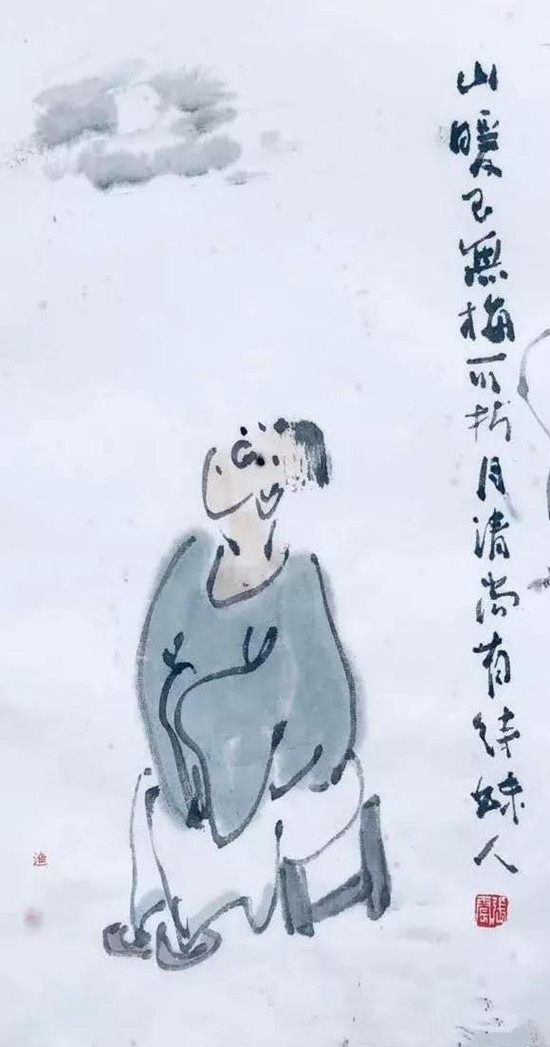 山暖已無梅可折月清尚有待妹人
渔